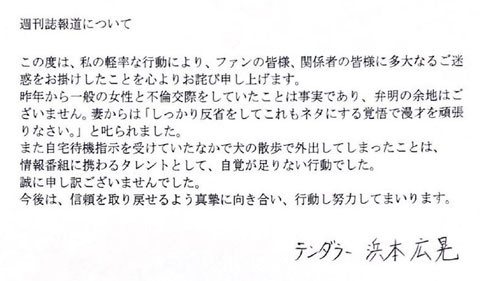 週刊誌報道について
この度は、私の軽率な行動により、ファンの皆様、関係者の皆様に多大なるご迷
惑をお掛けしたことを心よりお詫び申し上げます。
昨年から一般の女性と不倫交際をしていたことは事実であり、弁明の余地はご
ざいません。妻からは「しっかり反省をしてこれもネタにする覚悟で漫才を頑張
りなさい。」と叱られました。
また自宅待機指示を受けていたなかで犬の散歩で外出してしまったことは、
情報番組に携わるタレントとして、自覚が足りない行動でした。
誠に申し訳ございませんでした。
今後は、信頼を取り戻せるよう真摯に向き合い、行動し努力してまいります。
テンダラー 浜本広晃